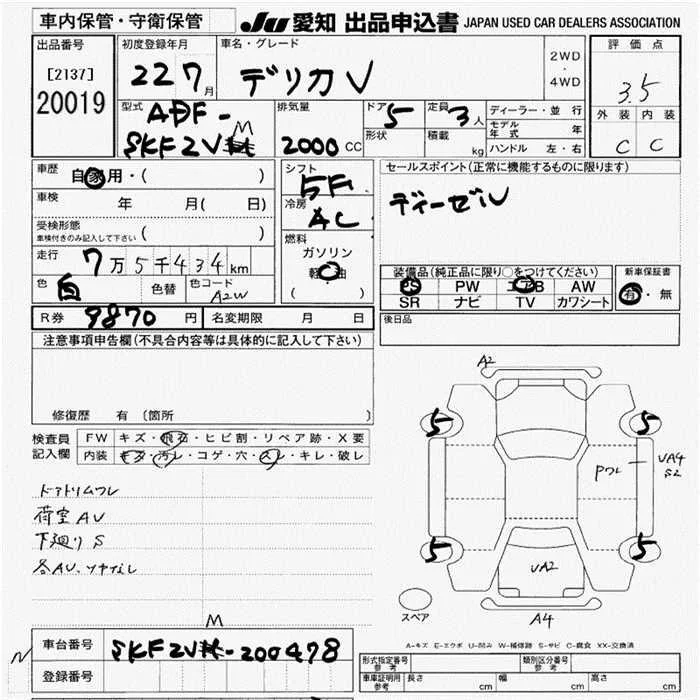 車内保管・守衛保管 Ju 愛知 出品申込書 JAPAN USED CAR DEALERS ASSOCIATION
出品番号 [2137] 20019
初度登録年月 22 7 月
車名・グレード デリカV
2WD ・ 4WD
評価点 3.5
外装 C 内装 C
型式 ADF-SKF2VM
排気量 2000 CC
ドア 5 形状
定員 3人 積載 kg
ディーラー・並行
モデル年式 年
ハンドル 左・右
車歴 自家用・( )
車検 年 月( 日)
受検形態 車検付きのみ記入して下さい ( )
走行 7万5千434km
色 白 色替 色コード A2W
シフト 5F
冷房 AC
燃料 ガソリン ・ 軽油 ( )
セールスポイント(正常に機能するものに限ります)
ディーゼル
装備品(純正品に限り○をつけてください) 新車保証書
PS PW エアB AW 有・無
SR ナビ TV カワシート
R券 9870 円 名変期限 月 日
後日品
注意事項申告欄(不具合内容等は具体的に記入して下さい)
修復歴 有 (箇所 )
検査員記入欄 FW キズ・飛石・ヒビ割・リペア跡・X要
内装 キズ・汚レ・コゲ・穴・スレ・キレ・破レ
ドアトリムワレ
荷室AU
下廻りS
各AU、
A2
5 5
Pワレ UA4 S2
5 5
UA2
スペア A4
A-キズ E-エクボ U-凹み W-補修跡 S-サビ C-腐食 XX-交換済
M
N 車台番号 SKF2V-200478
登録番号
形式指定番号 参考 類別区分番号 参考
車庫証明用 参考 長さ cm 幅 cm 高さ cm